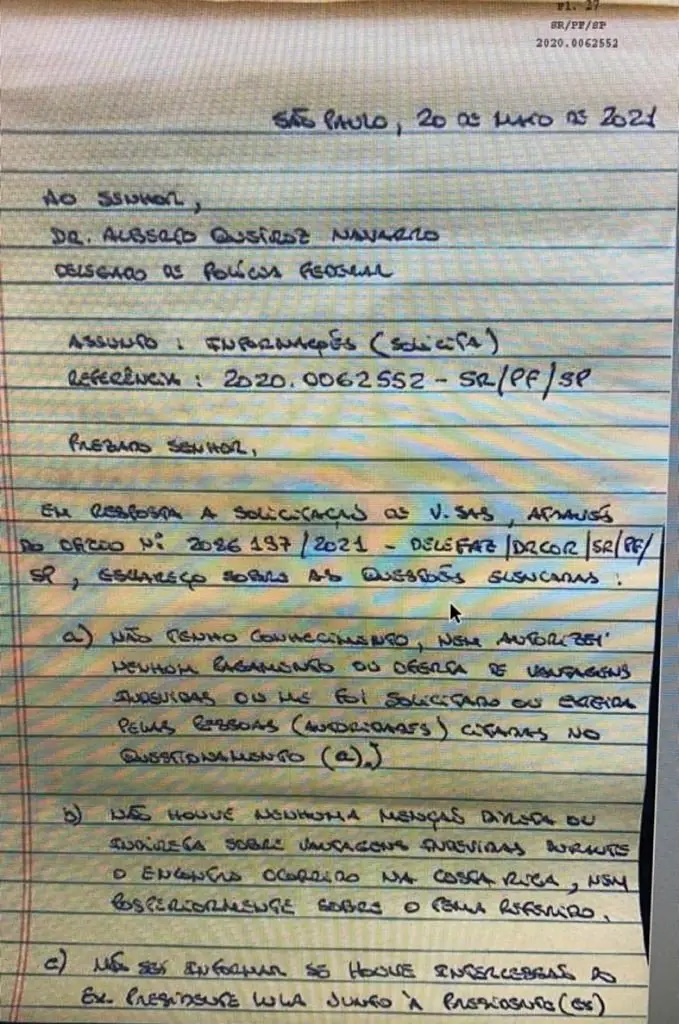 Fl. 27
SR/PF/SP
2020.0062552
SÃO PAULO, 20 DE MAIO DE 2021
AO SENHOR,
DR. ALBERTO QUEIROZ NAVARRO
DELEGADO DE POLÍCIA FEDERAL
ASSUNTO: INFORMAÇÕES (SOLICITA)
REFERÊNCIA: 2020.0062552 - SR/PF/SP
PREZADO SENHOR,
EM RESPOSTA A SOLICITAÇÃO DE V.SAS, ATRAVÉS
DO OFÍCIO Nº 2086197/2021 - DELEFAZ/DRCOR/SR/PF/
SP, ESCLAREÇO SOBRE AS QUESTÕES ELENCADAS:
a) NÃO TENHO CONHECIMENTO, NEM AUTORIZEI
NENHUM PAGAMENTO OU OFERTA DE VANTAGENS
INDEVIDAS OU ME FOI SOLICITADO OU EXIGIDA
PELAS PESSOAS (AUTORIDADES) CITADAS NO
QUESTIONAMENTO (a).)
b) NÃO HOUVE NENHUMA MENÇÃO DIRETA OU
INDIRETA SOBRE VANTAGENS INDEVIDAS DURANTE
O ENCONTRO OCORRIDO NA COSTA RICA, NEM
POSTERIORMENTE SOBRE O TEMA REFERIDO.
c) NÃO SEI INFORMAR SE HOUVE INTERCESSÃO DO
EX. PRESIDENTE LULA JUNTO À PRESIDENTE(EX)